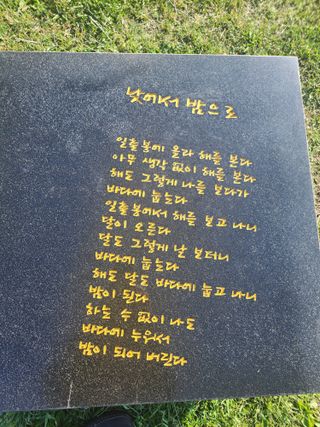 낮에서 밤으로
일출봉에 올라 해를 본다
아무 생각 없이 해를 본다
해도 그렇게 나를 보다가
바다에 눕는다
일출봉에서 해를 보고 나니
달이 오른다
달도 그렇게 날 보더니
바다에 눕는다
해도 달도 바다에 눕고 나니
밤이 된다
하는 수 없이 나도
바다에 누워서
밤이 되어 버린다